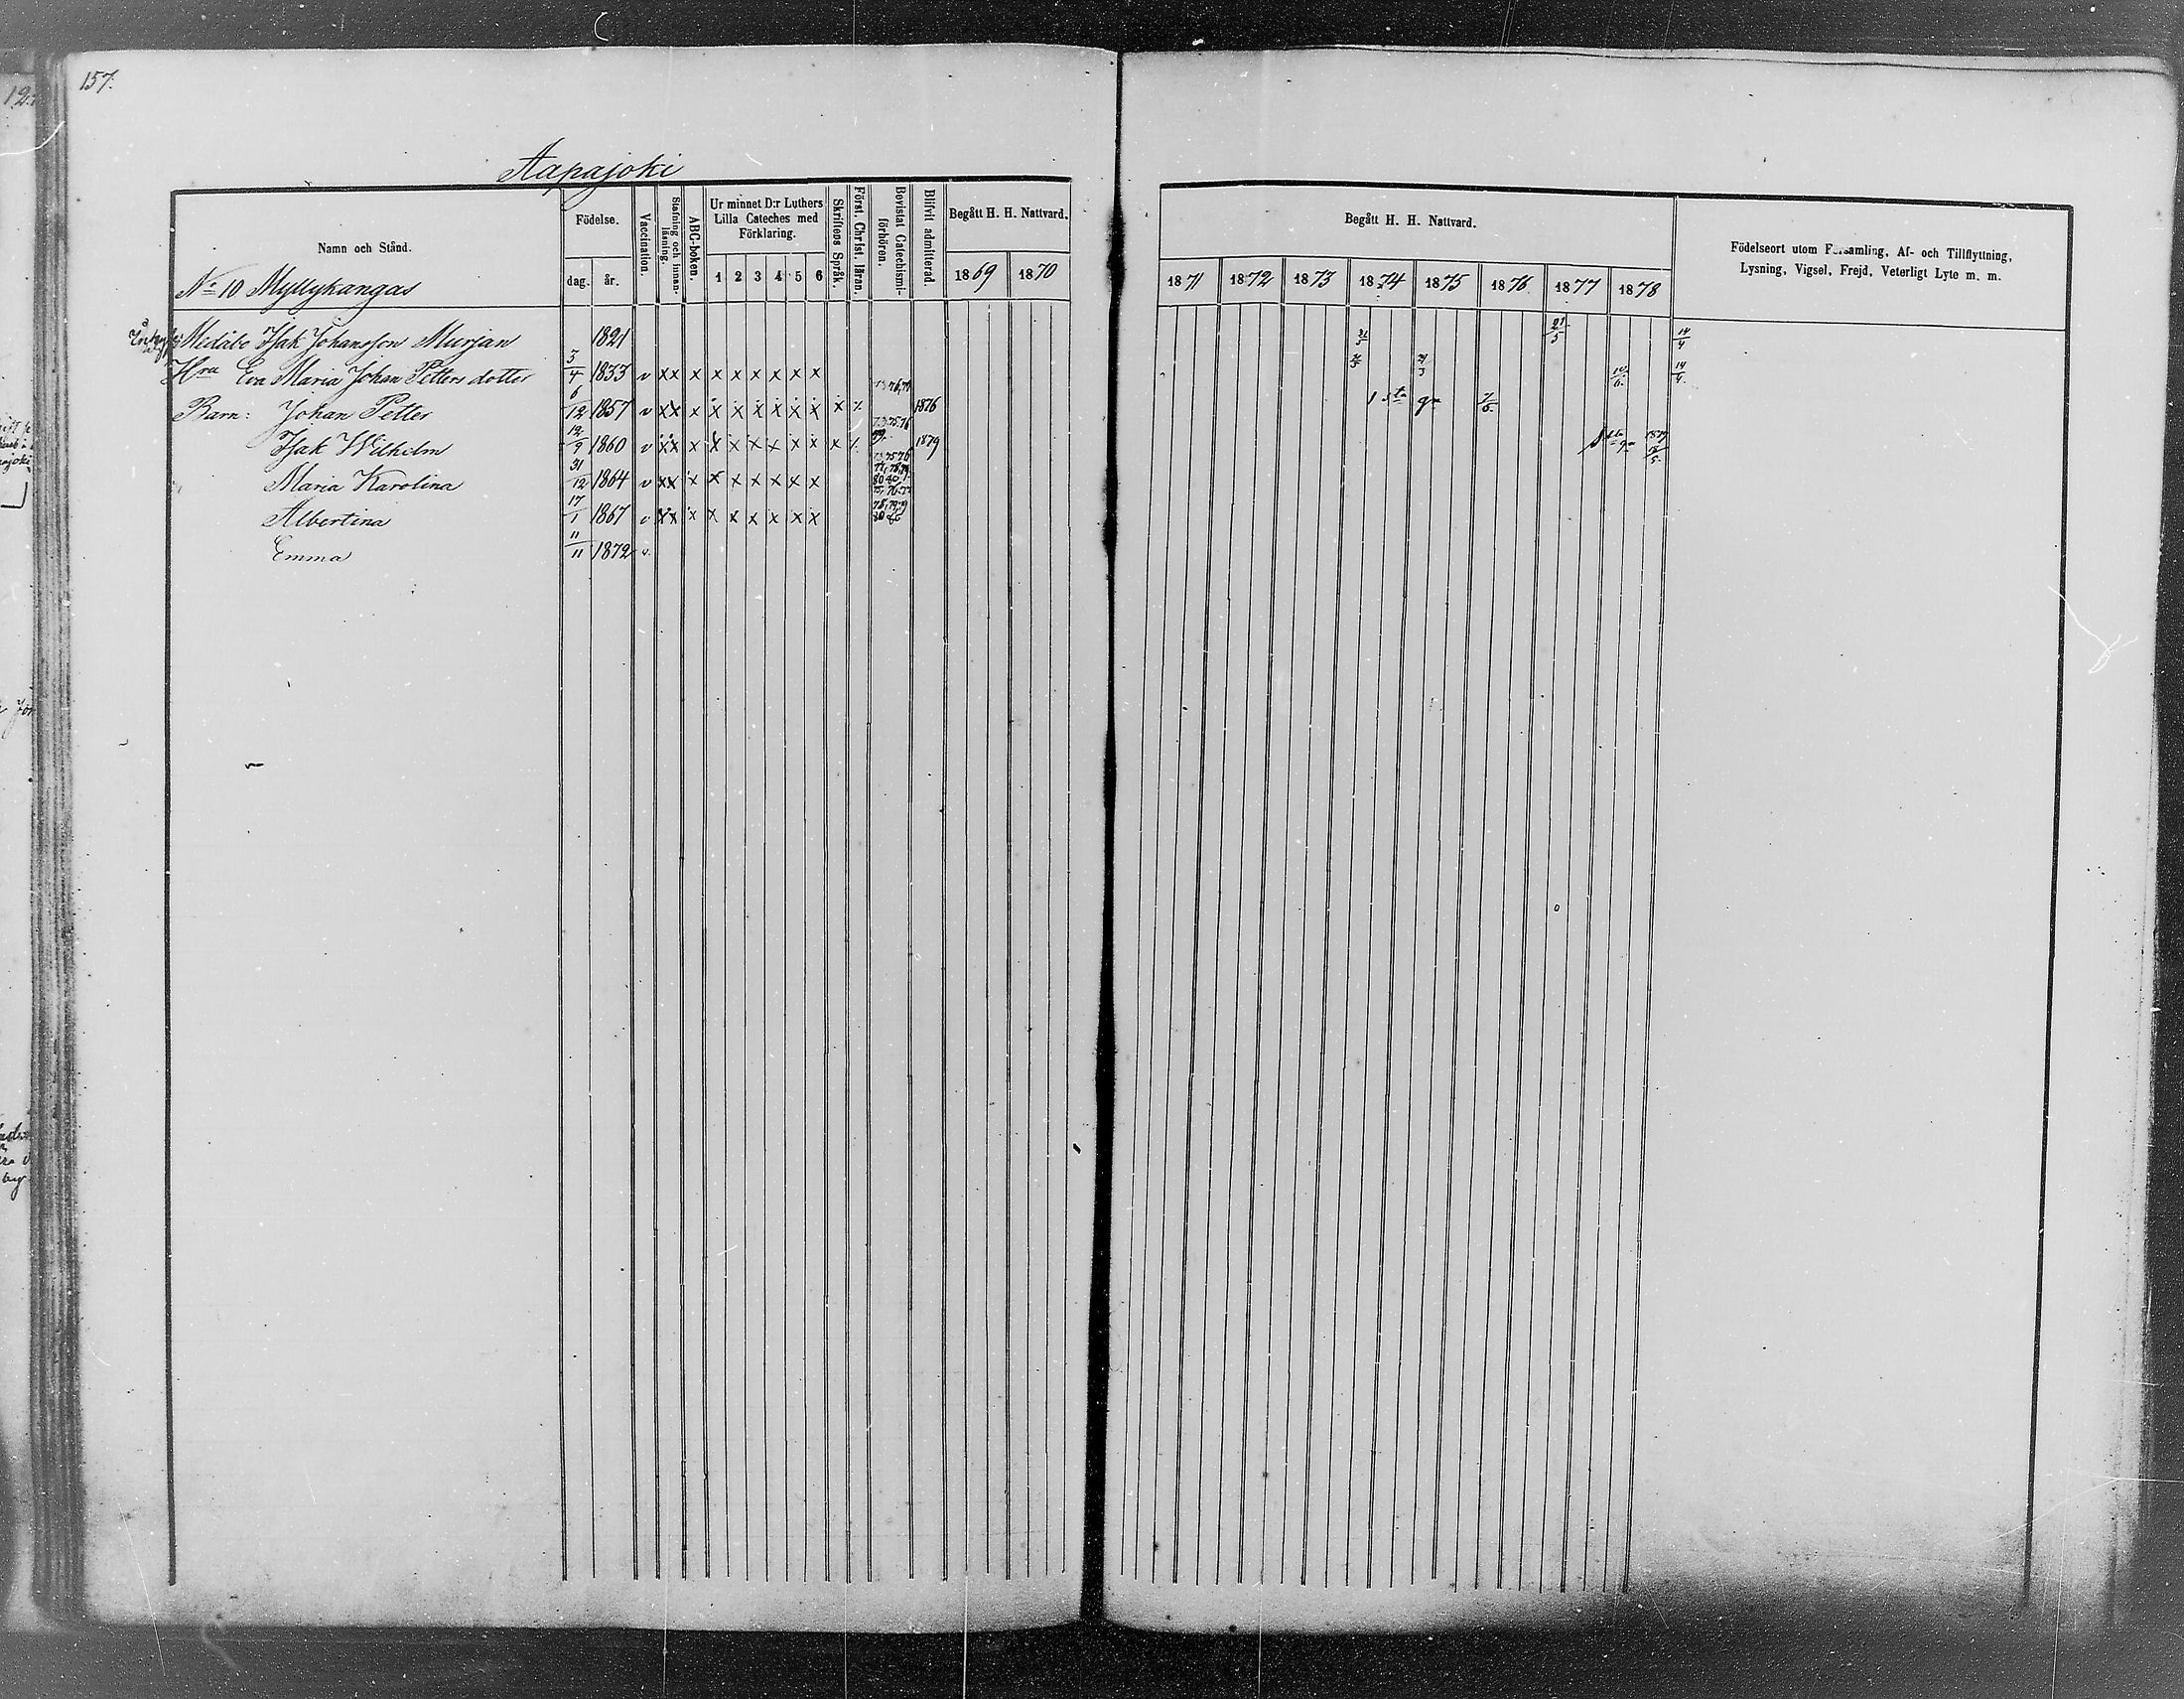 157.
Aapajoki
Namn och Stånd.
Födelse.
dag. år.
Vaccination.
Stafning och innan-läsning.
ABC-boken.
Ur minnet D:r Luthers
Lilla Cateches med
Förklaring.
1 2 3 4 5 6
Skriftens Språk.
Först. Christ. läran.
Bevistat Catechismi-förhören.
Blifvit admitterad.
Begått H. H. Nattvard.
1869 1870
Begått H. H. Nattvard.
1871 1872 1873 1874 1875 1876 1877 1878
Födelseort utom Församling, Af- och Tillflyttning,
Lysning, Vigsel, Frejd, Veterligt Lyte m. m.
No 10 Myllykangas
Medåbo Isak Johansson Murjan 1821 21/5 14/4
Hra Eva Maria Johan Petters dotter 3/4 1833 v x x x x x x x x x 14/4
Barn: Johan Petter 6/12 1857 v x x x x x x x x x x 1876 1sta gn
Isak Wilhelm 12/9 1860 v x x x x x x x x x x 1879 1sta gn
Maria Karolina 31/12 1864 v x x x x x x x x x
Albertina 17/1 1867 v x x x x x x x x x
Emma 11/11 1872 v.